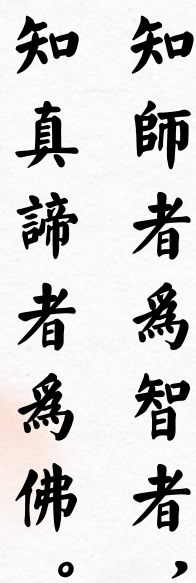 知師者為智者，
知真諦者為佛。